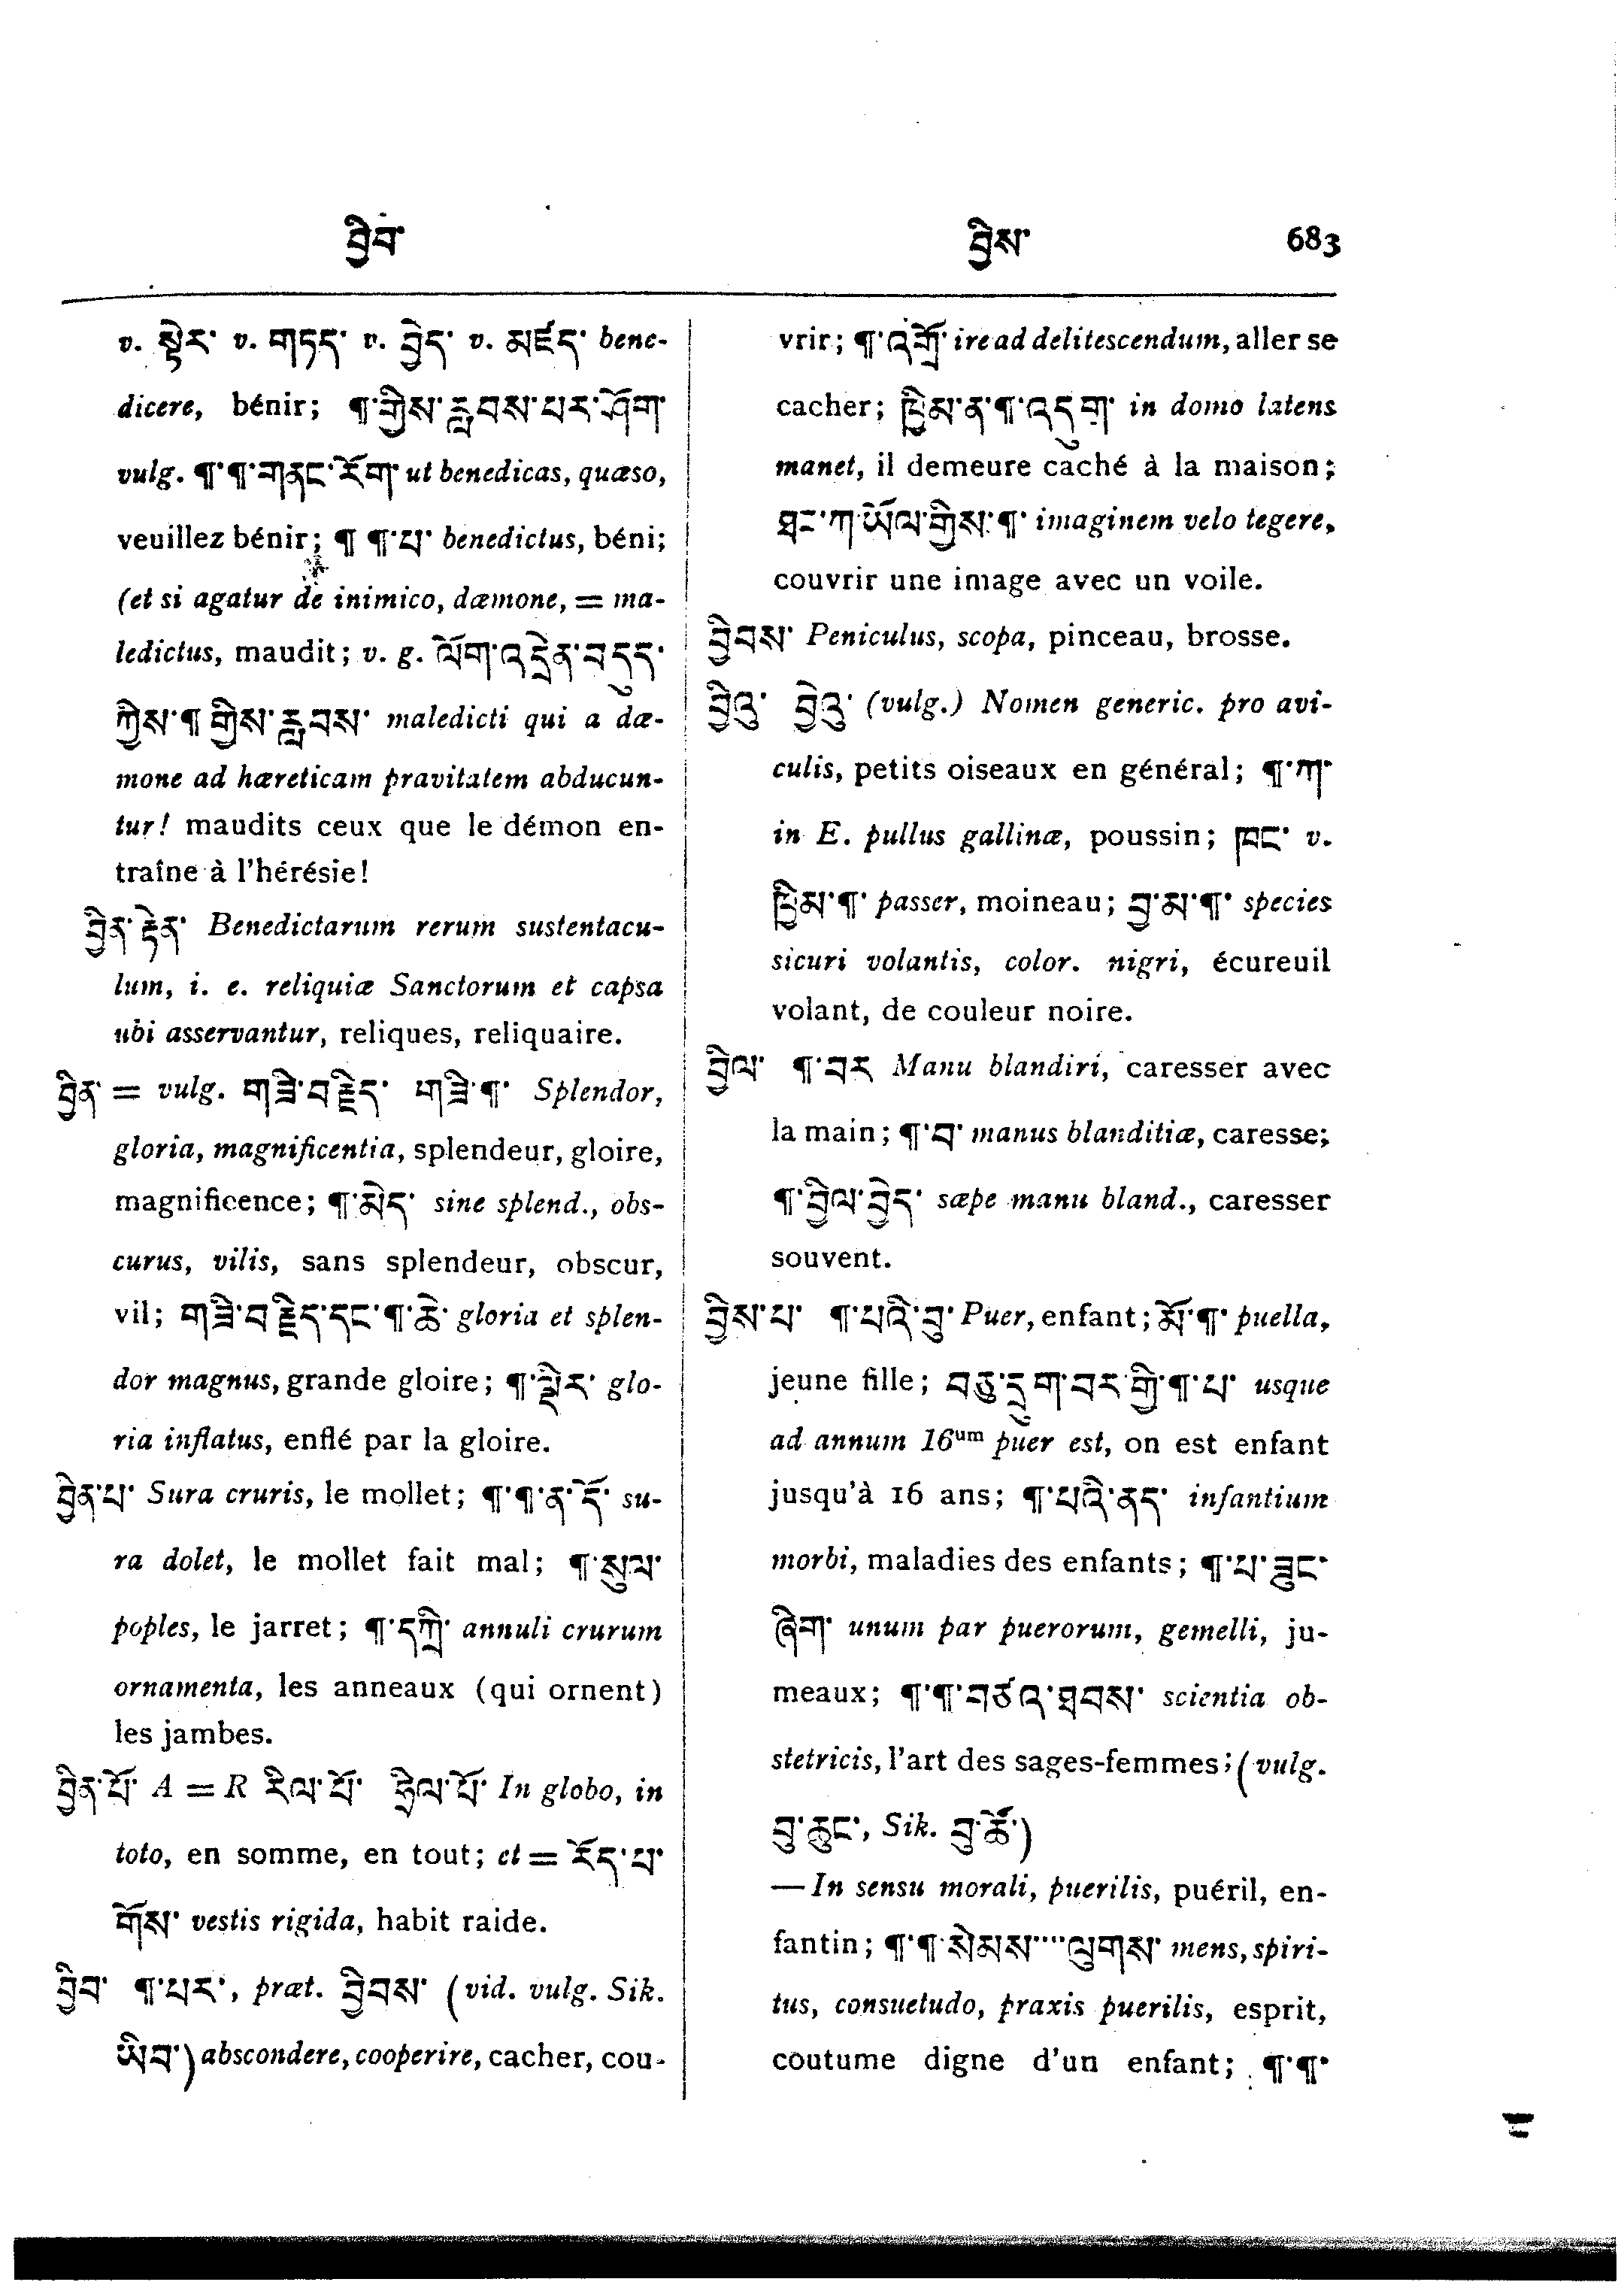 བྱིབ་ བྱིས་ 683
v. སྟེར་ v. གཏད་ v. བྱེད་ v. མཛད་ bene-
dicere, bénir; ¶་གྱིས་རླབས་པར་ཤོག་
vulg. ¶་¶་གནང་རོག་ ut benedicas, quæso,
veuillez bénir; ¶ ¶་པ་ benedictus, béni;
(et si agatur de inimico, dæmone, = ma-
ledictus, maudit; v. g. ལོག་འདྲེན་བདུད་
ཀྱིས་¶ གྱིས་རླབས་ maledicti qui a dæ-
mone ad hæreticam pravitatem abducun-
tur! maudits ceux que le démon en-
traîne à l'hérésie!
བྱིན་རྟེན་ Benedictarum rerum sustentacu-
lum, i. e. reliquiæ Sanctorum et capsa
ubi asservantur, reliques, reliquaire.
བྱིན་ = vulg. གཟི་བརྗིད་ གཟི་¶་ Splendor,
gloria, magnificentia, splendeur, gloire,
magnificence; ¶་མེད་ sine splend., obs-
curus, vilis, sans splendeur, obscur,
vil; གཟི་བརྗིད་དང་¶་ཆེ་ gloria et splen-
dor magnus, grande gloire; ¶་ glo-
ria inflatus, enflé par la gloire.
བྱིན་པ་ Sura cruris, le mollet; ¶་¶་ན་དོ་ su-
ra dolet, le mollet fait mal; ¶་སུལ་
poples, le jarret; ¶་དཀྲི་ annuli crurum
ornamenta, les anneaux (qui ornent)
les jambes.
བྱིན་པོ་ A = R རིལ་པོ་ ཧྲིལ་པོ་ In globo, in
toto, en somme, en tout; et = རོད་པ་
གོས་ vestis rigida, habit raide.
བྱིབ་ ¶་པར་, præt. བྱིབས་ (vid. vulg. Sik.
ཡིབ་) abscondere, cooperire, cacher, cou-
vrir; ¶་འགྲོ་ ire ad delitescendum, aller se
cacher; ཁྱིམ་ན་¶་འདུག་ in domo latens
manet, il demeure caché à la maison;
ཐང་ཀ་ཡོལ་གྱིས་¶་ imaginem velo tegere,
couvrir une image avec un voile.
བྱིབས་ Peniculus, scopa, pinceau, brosse.
བྱིའུ་ བྱེའུ་ (vulg.) Nomen generic. pro avi-
culis, petits oiseaux en général; ¶་ཀ་
in E. pullus gallinæ, poussin; ཁང་ v.
ཁྱིམ་¶་ passer, moineau; བྱ་མ་¶་ species
sicuri volantis, color. nigri, écureuil
volant, de couleur noire.
བྱིལ་ ¶་བར Manu blandiri, caresser avec
la main; ¶་བ་ manus blanditiæ, caresse;
¶་བྱིལ་བྱེད་ sæpe manu bland., caresser
souvent.
བྱིས་པ་ ¶་པའི་བུ་ Puer, enfant; མོ་¶་ puella,
jeune fille; བཅུ་དྲུག་བར་གྱི་¶་པ་ usque
ad annum 16um puer est, on est enfant
jusqu'à 16 ans; ¶་པའི་ནད་ infantium
morbi, maladies des enfants; ¶་པ་ཟུང་
ཞིག་ unum par puerorum, gemelli, ju-
meaux; ¶་¶་བཙའ་ཐབས་ scientia ob-
stetricis, l'art des sages-femmes; (vulg.
བུ་ཆུང་, Sik. བུ་ཚོ་)
— In sensu morali, puerilis, puéril, en-
fantin; ¶་¶་སེམས་་་་་ལུགས་ mens, spiri-
tus, consuetudo, praxis puerilis, esprit,
coutume digne d'un enfant; ¶་¶་